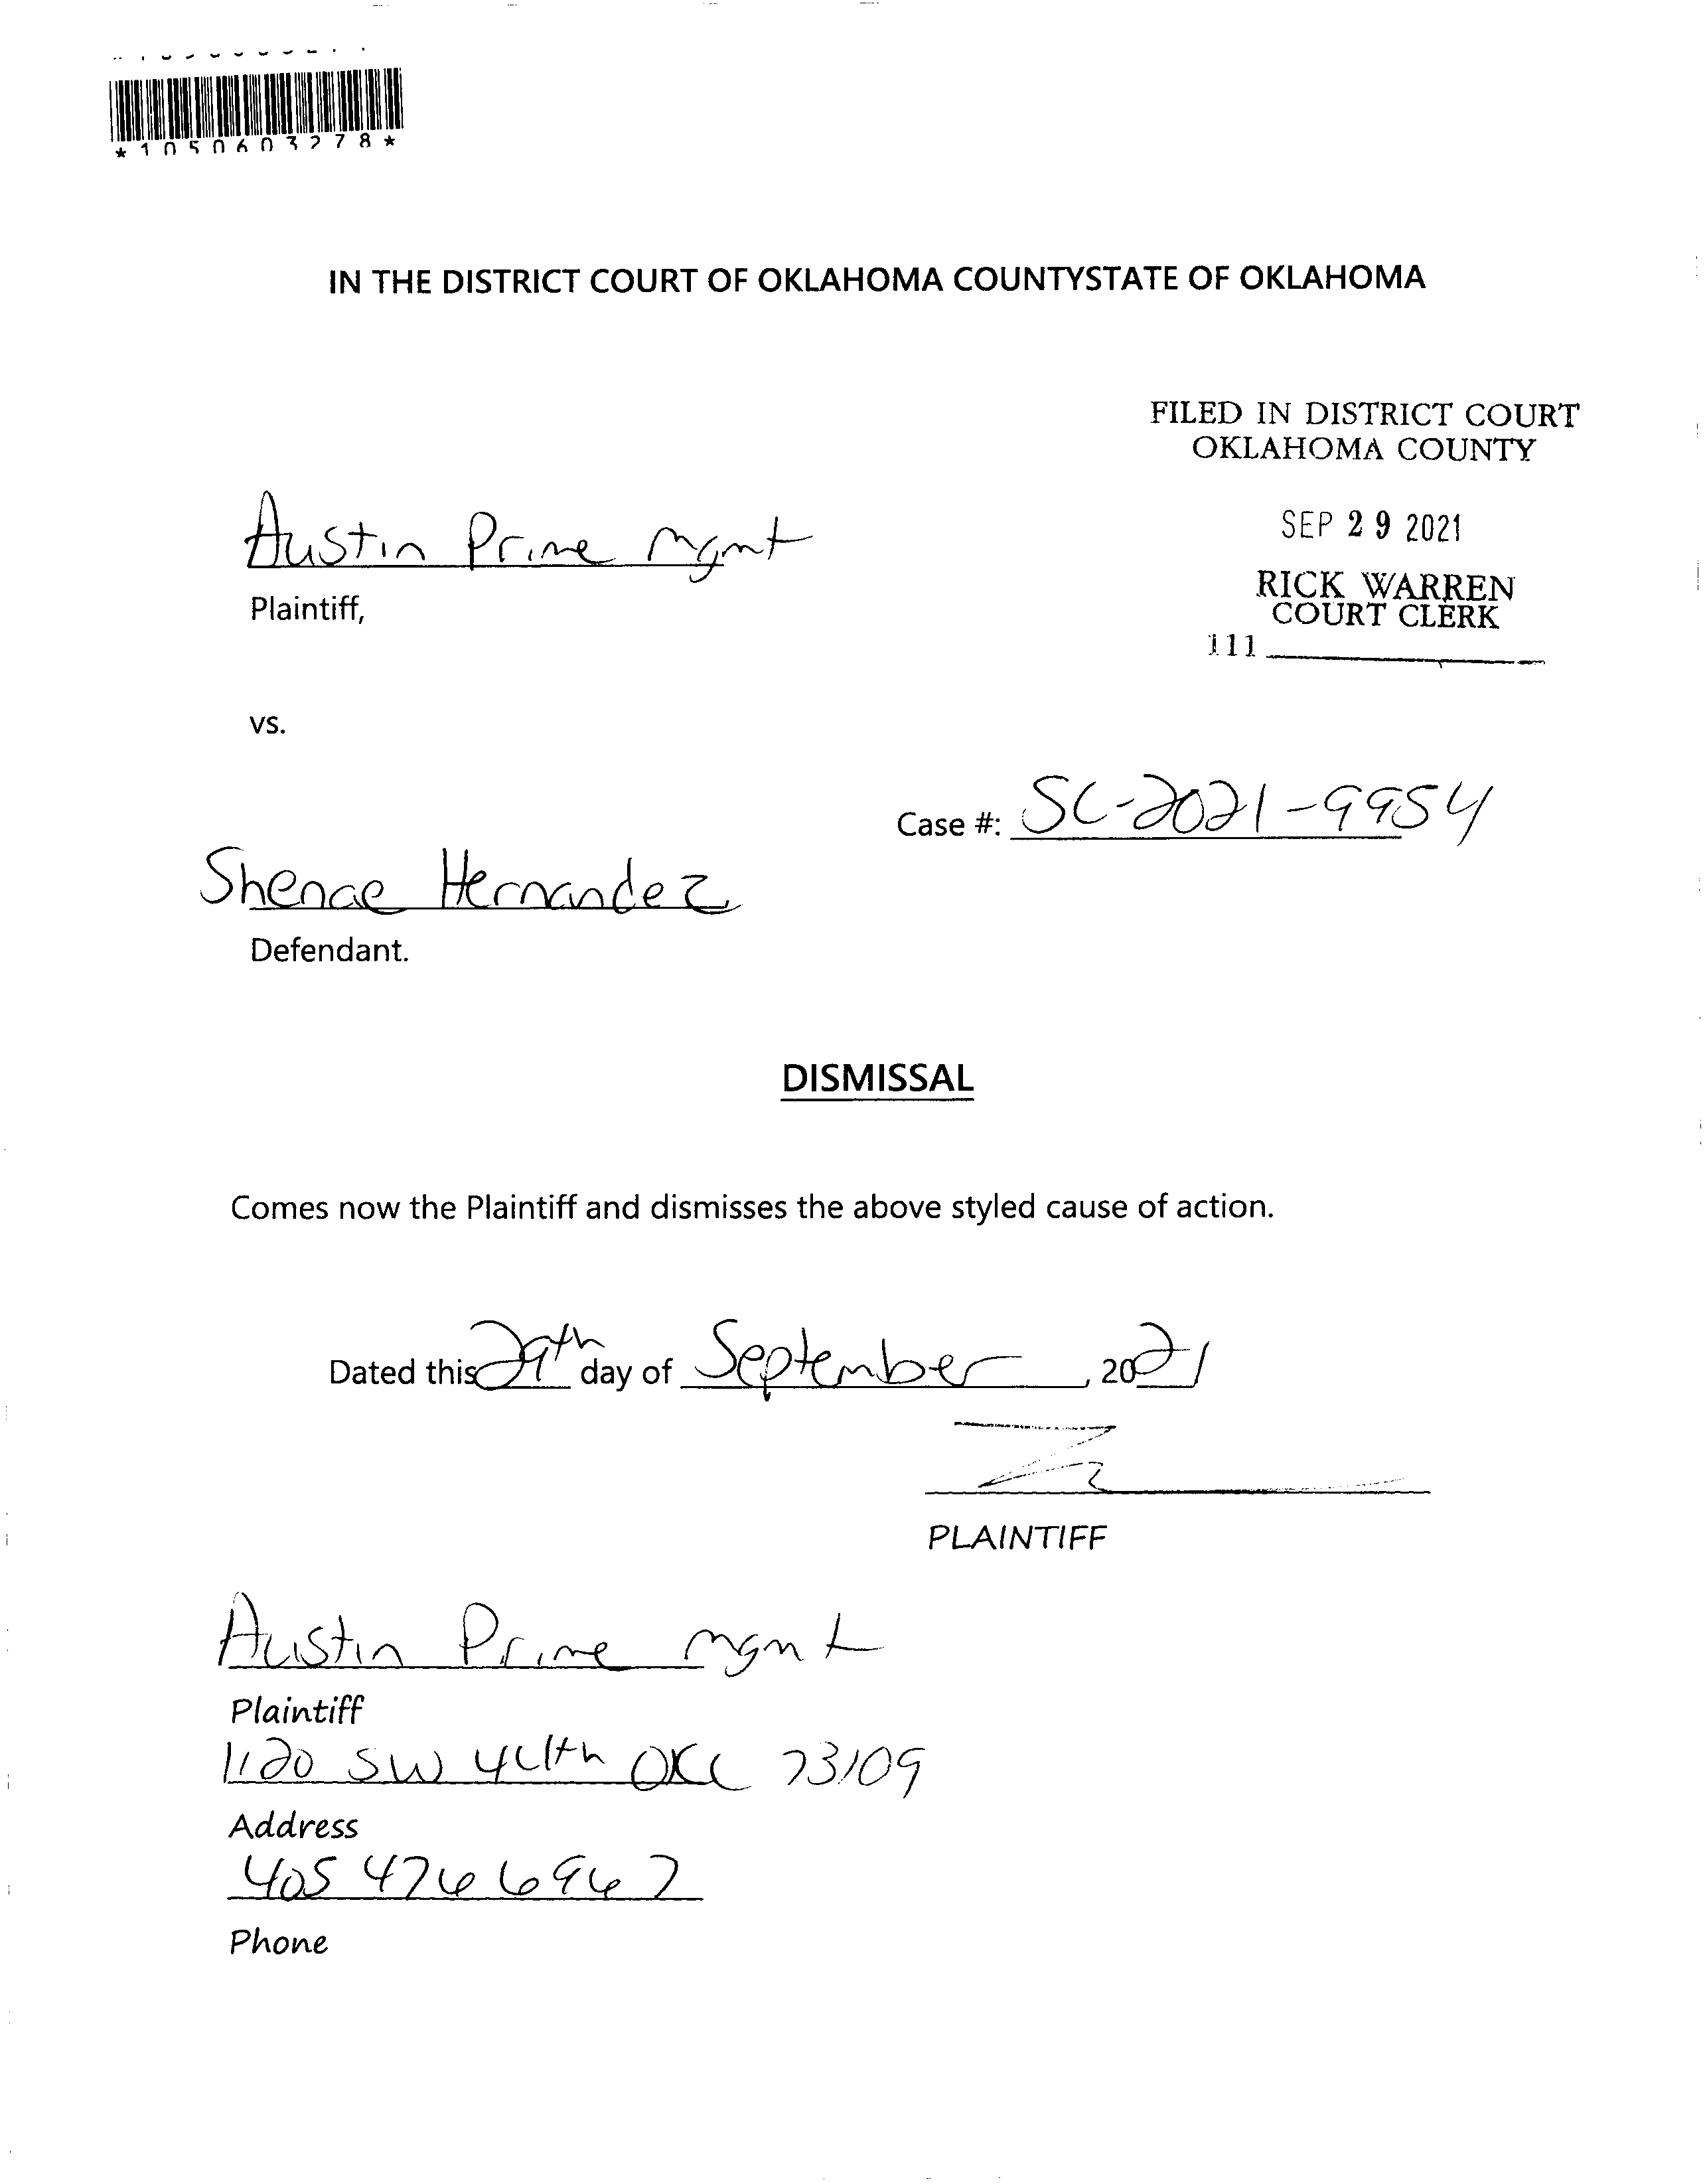 *1050603278*
IN THE DISTRICT COURT OF OKLAHOMA COUNTYSTATE OF OKLAHOMA
FILED IN DISTRICT COURT
OKLAHOMA COUNTY
SEP 29 2021
RICK WARREN
COURT CLERK
111
Austin Prime mgmt
Plaintiff,
vs.
Case #: SC-2021-9954
Shenae Hernandez
Defendant.
DISMISSAL
Comes now the Plaintiff and dismisses the above styled cause of action.
Dated this 29th day of September, 2021
PLAINTIFF
Austin Prime mgmt
Plaintiff
1120 SW 44th OKC 73109
Address
405 476 6967
Phone